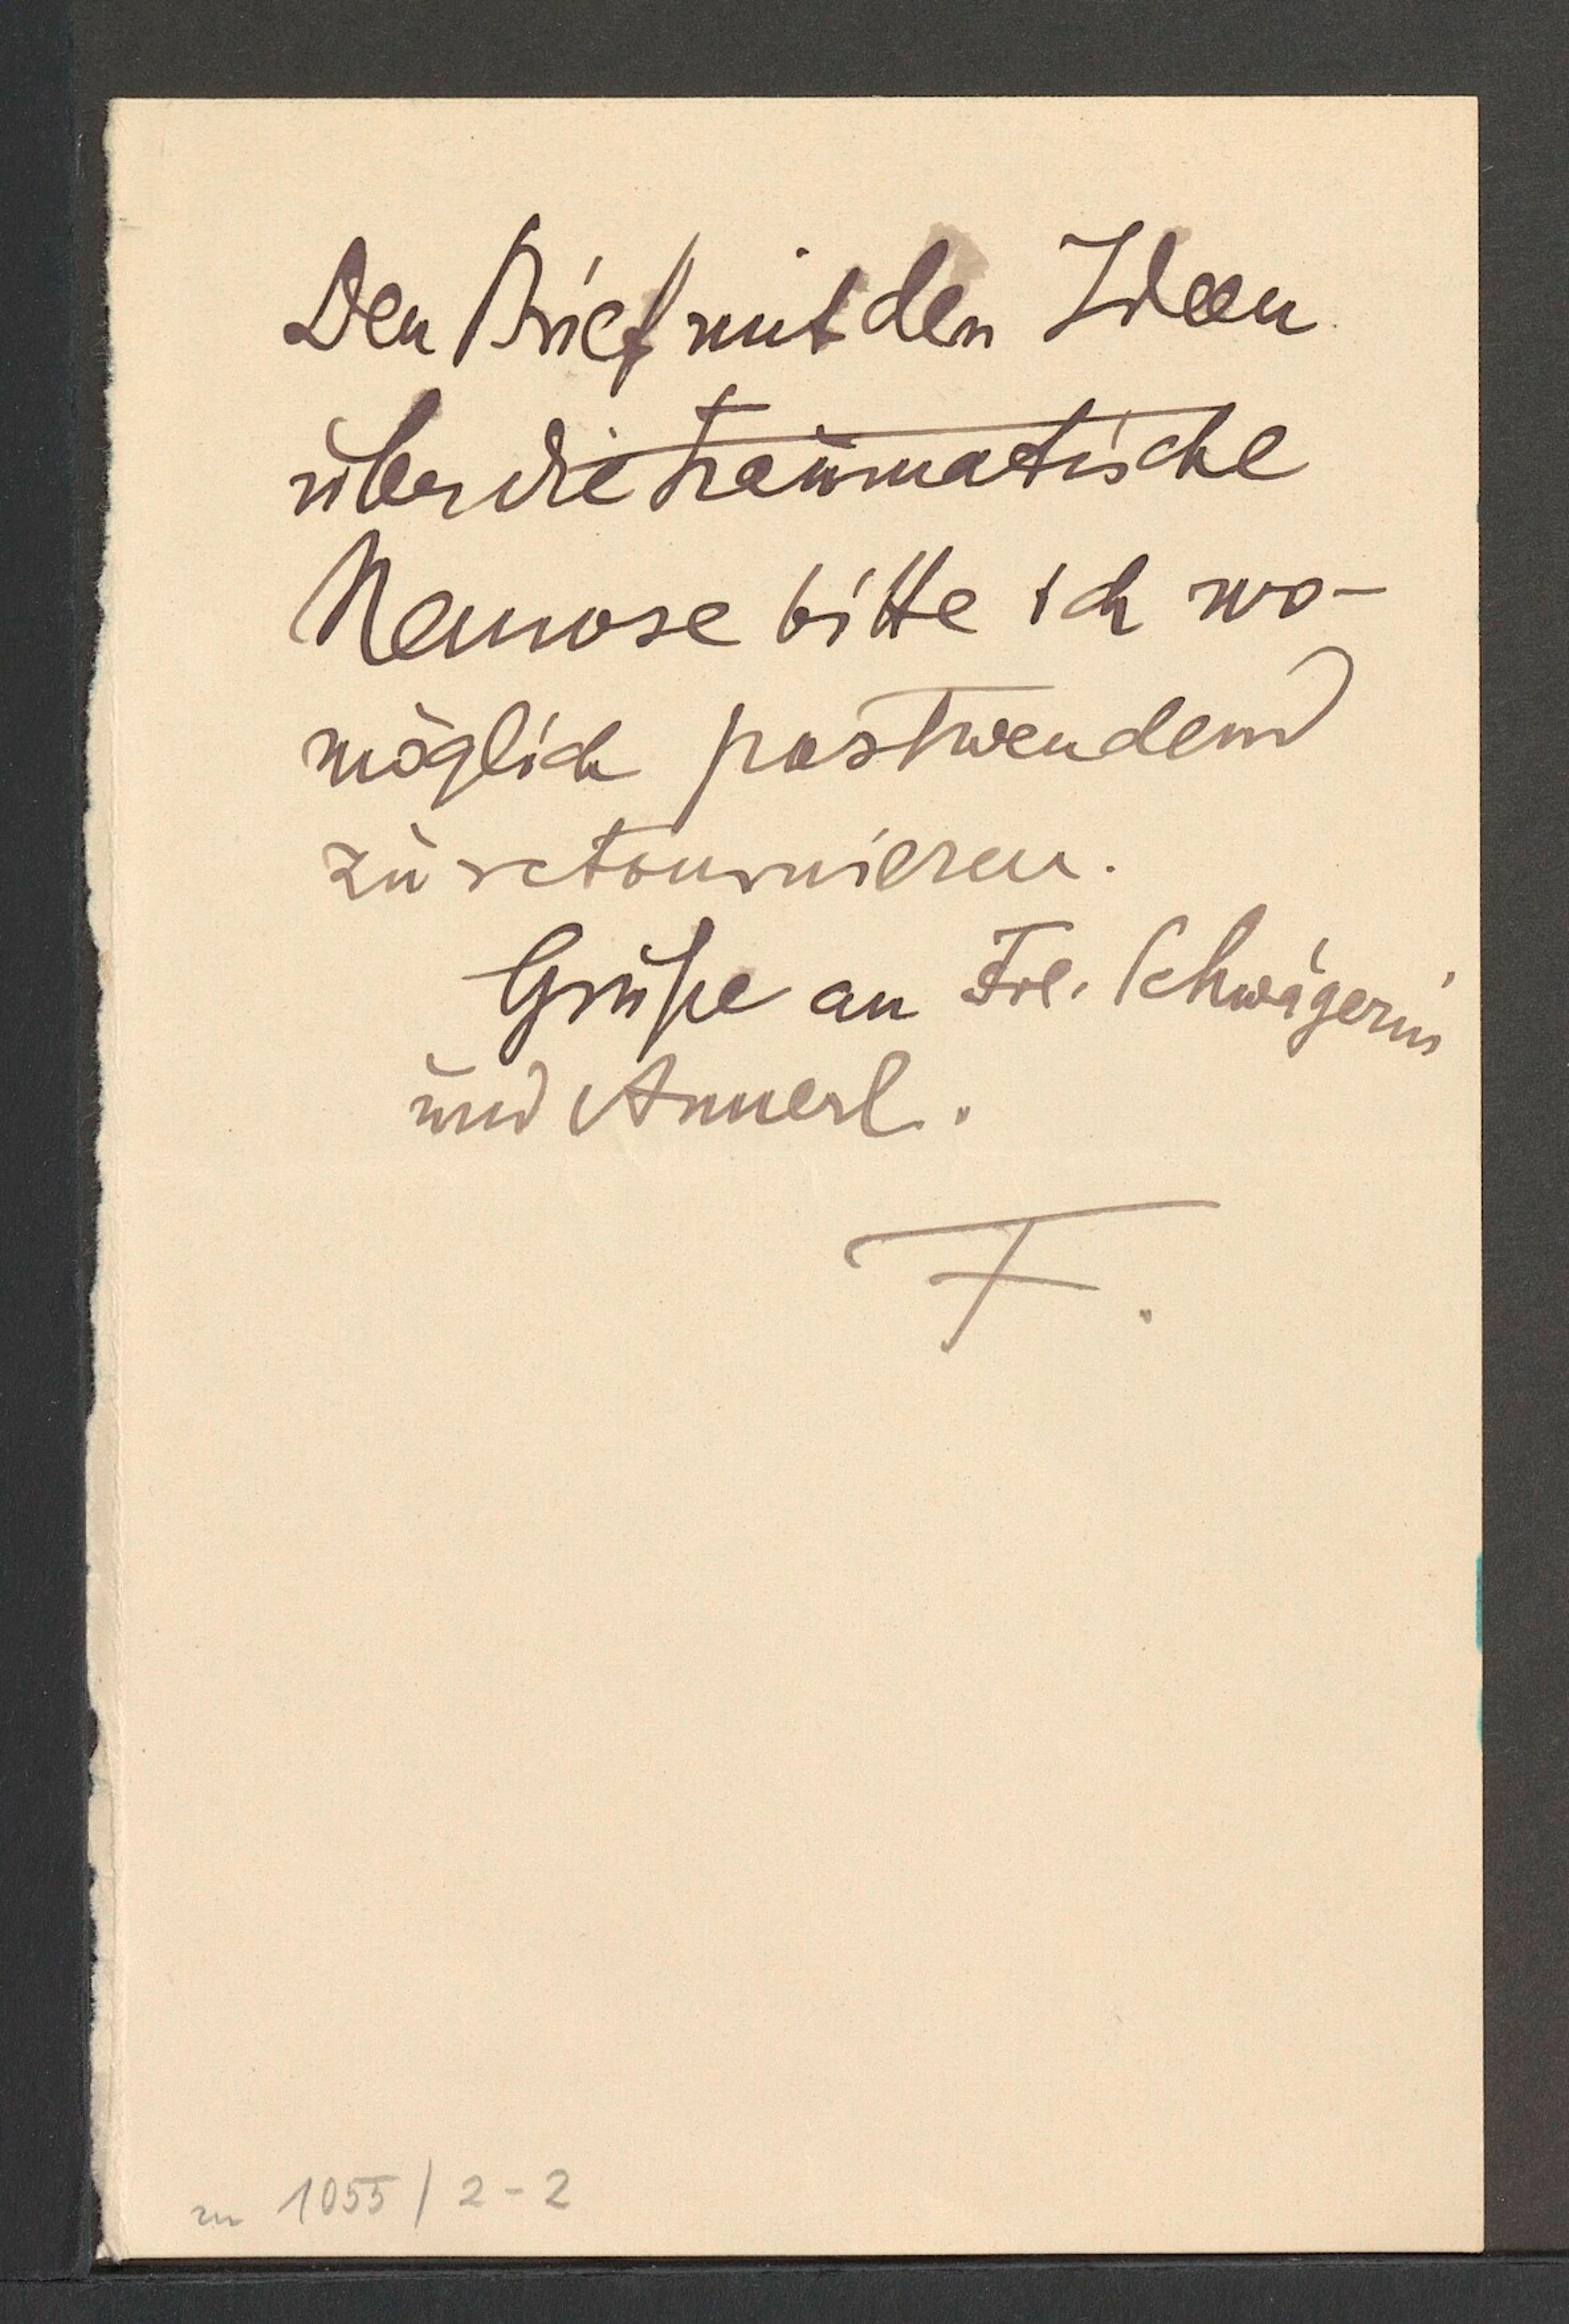 Den Brief mit den Ideen
über die traumatische
Neurose bitte ich wo-
möglich postwendend
zu retournieren.
Grüße an Frl. Schwägerin
und Annerl.
F.
zu 1055/2-2